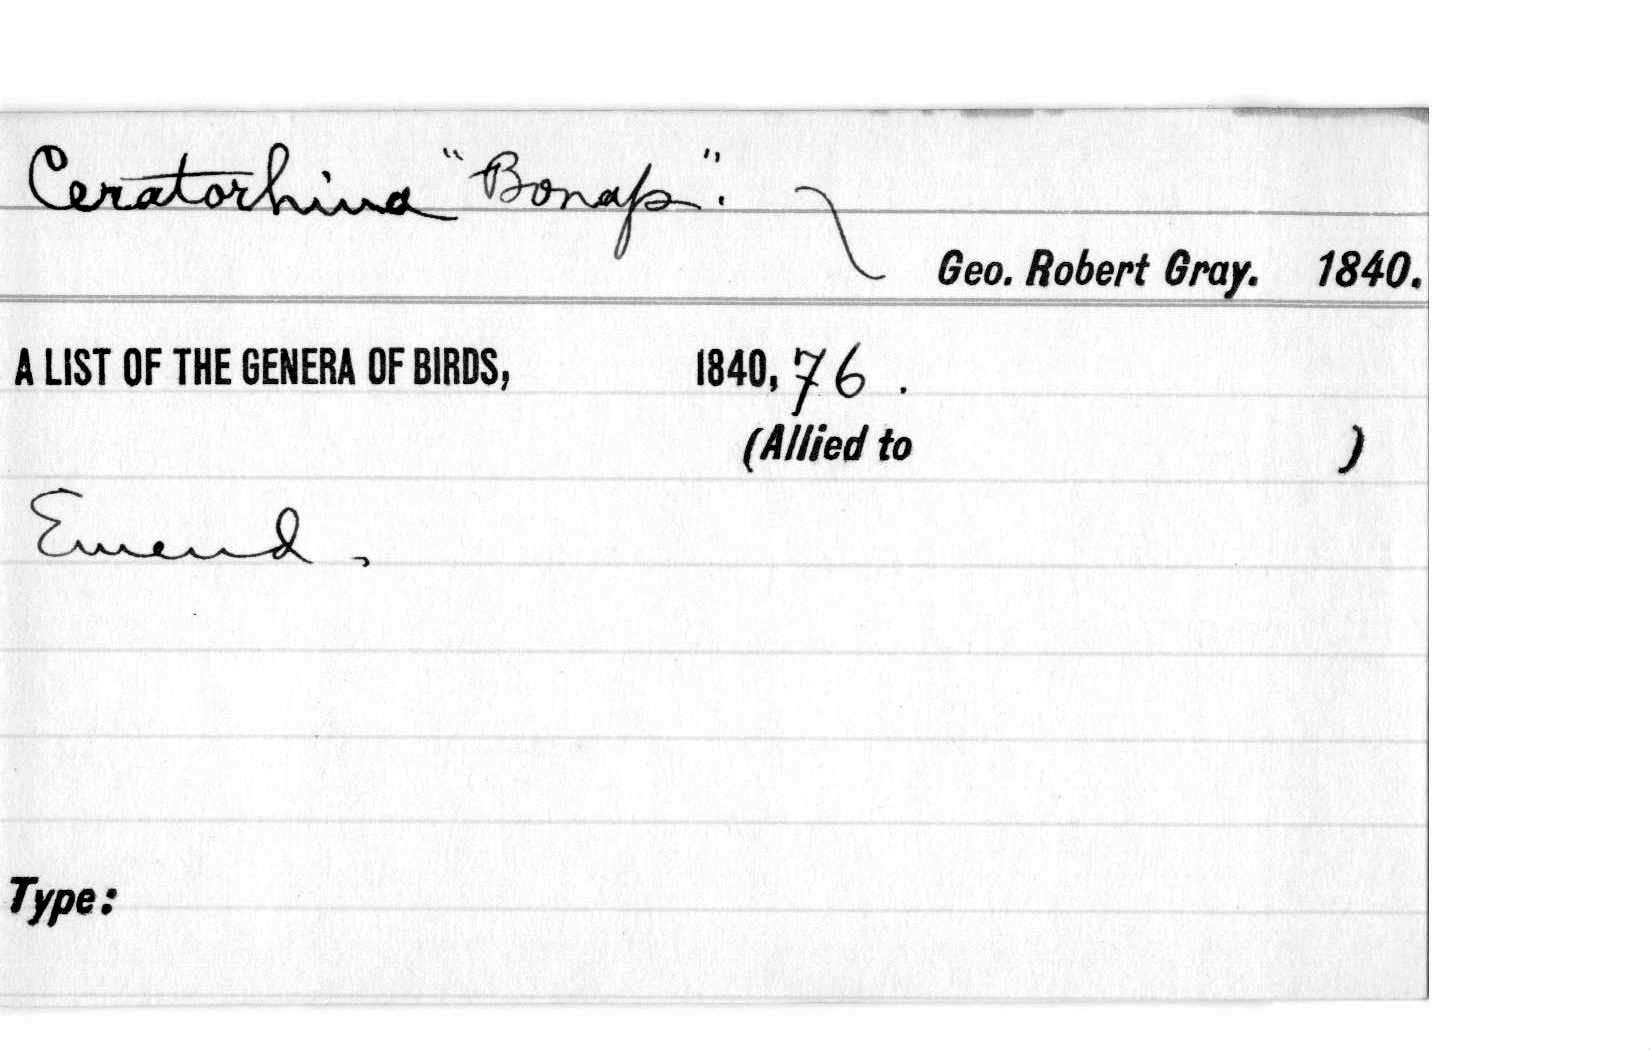 Ceratorhina "Bonap".
Geo. Robert Gray. 1840.
A LIST OF THE GENERA OF BIRDS, 1840, 76.
(Allied to )
Emend.
Type: